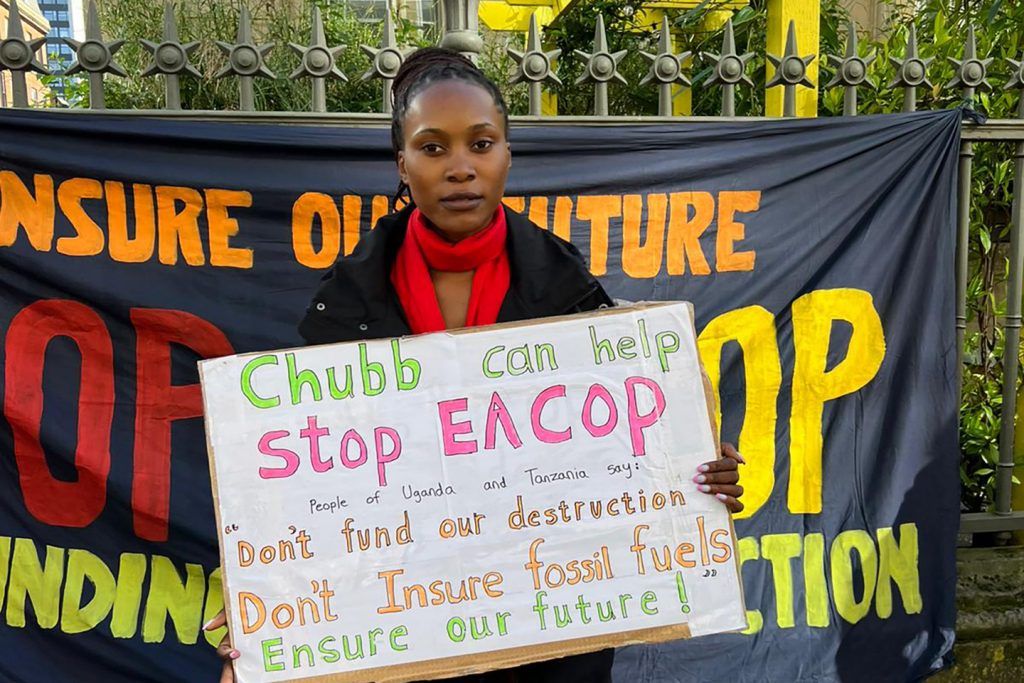 NSURE OU FUTURE
OP OP
UNDING CTION
Chubb can help
stop EACOP
People of Uganda and Tanzania say:
"Don't fund our destruction
Don't Insure fossil fuels"
Ensure our future!